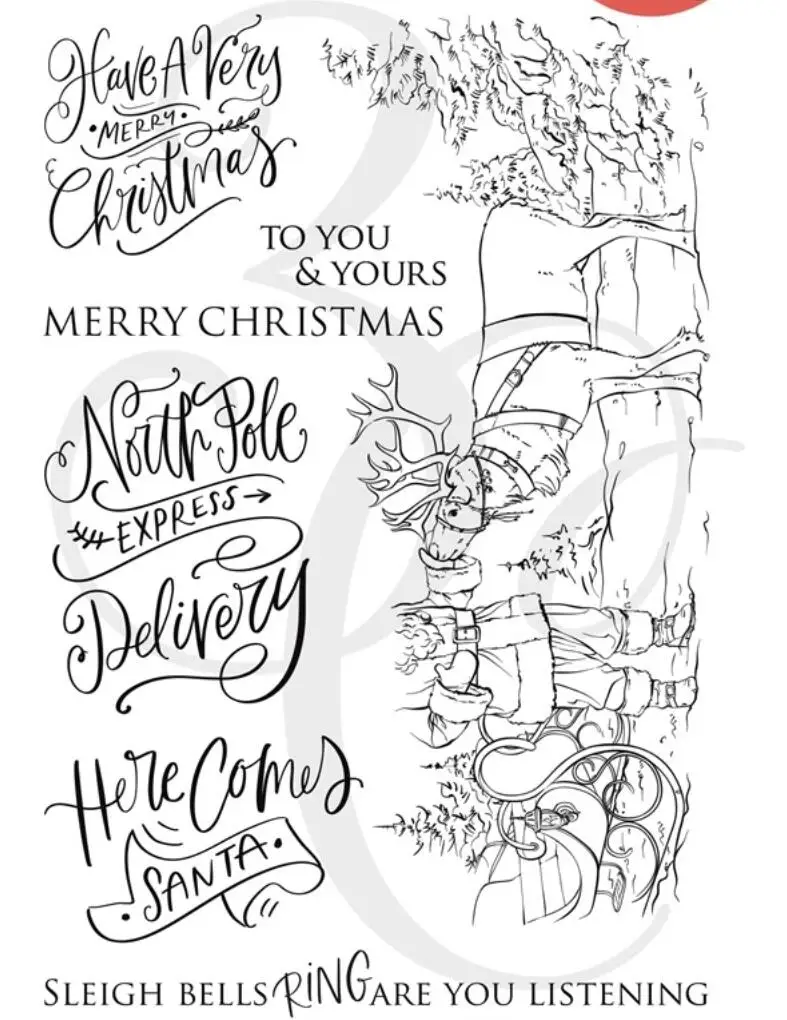 Have A Very
•MERRY•
Christmas
TO YOU
& YOURS
MERRY CHRISTMAS
North Pole
EXPRESS
Delivery
Here Comes
SANTA•
SLEIGH BELLS RiNG ARE YOU LISTENING